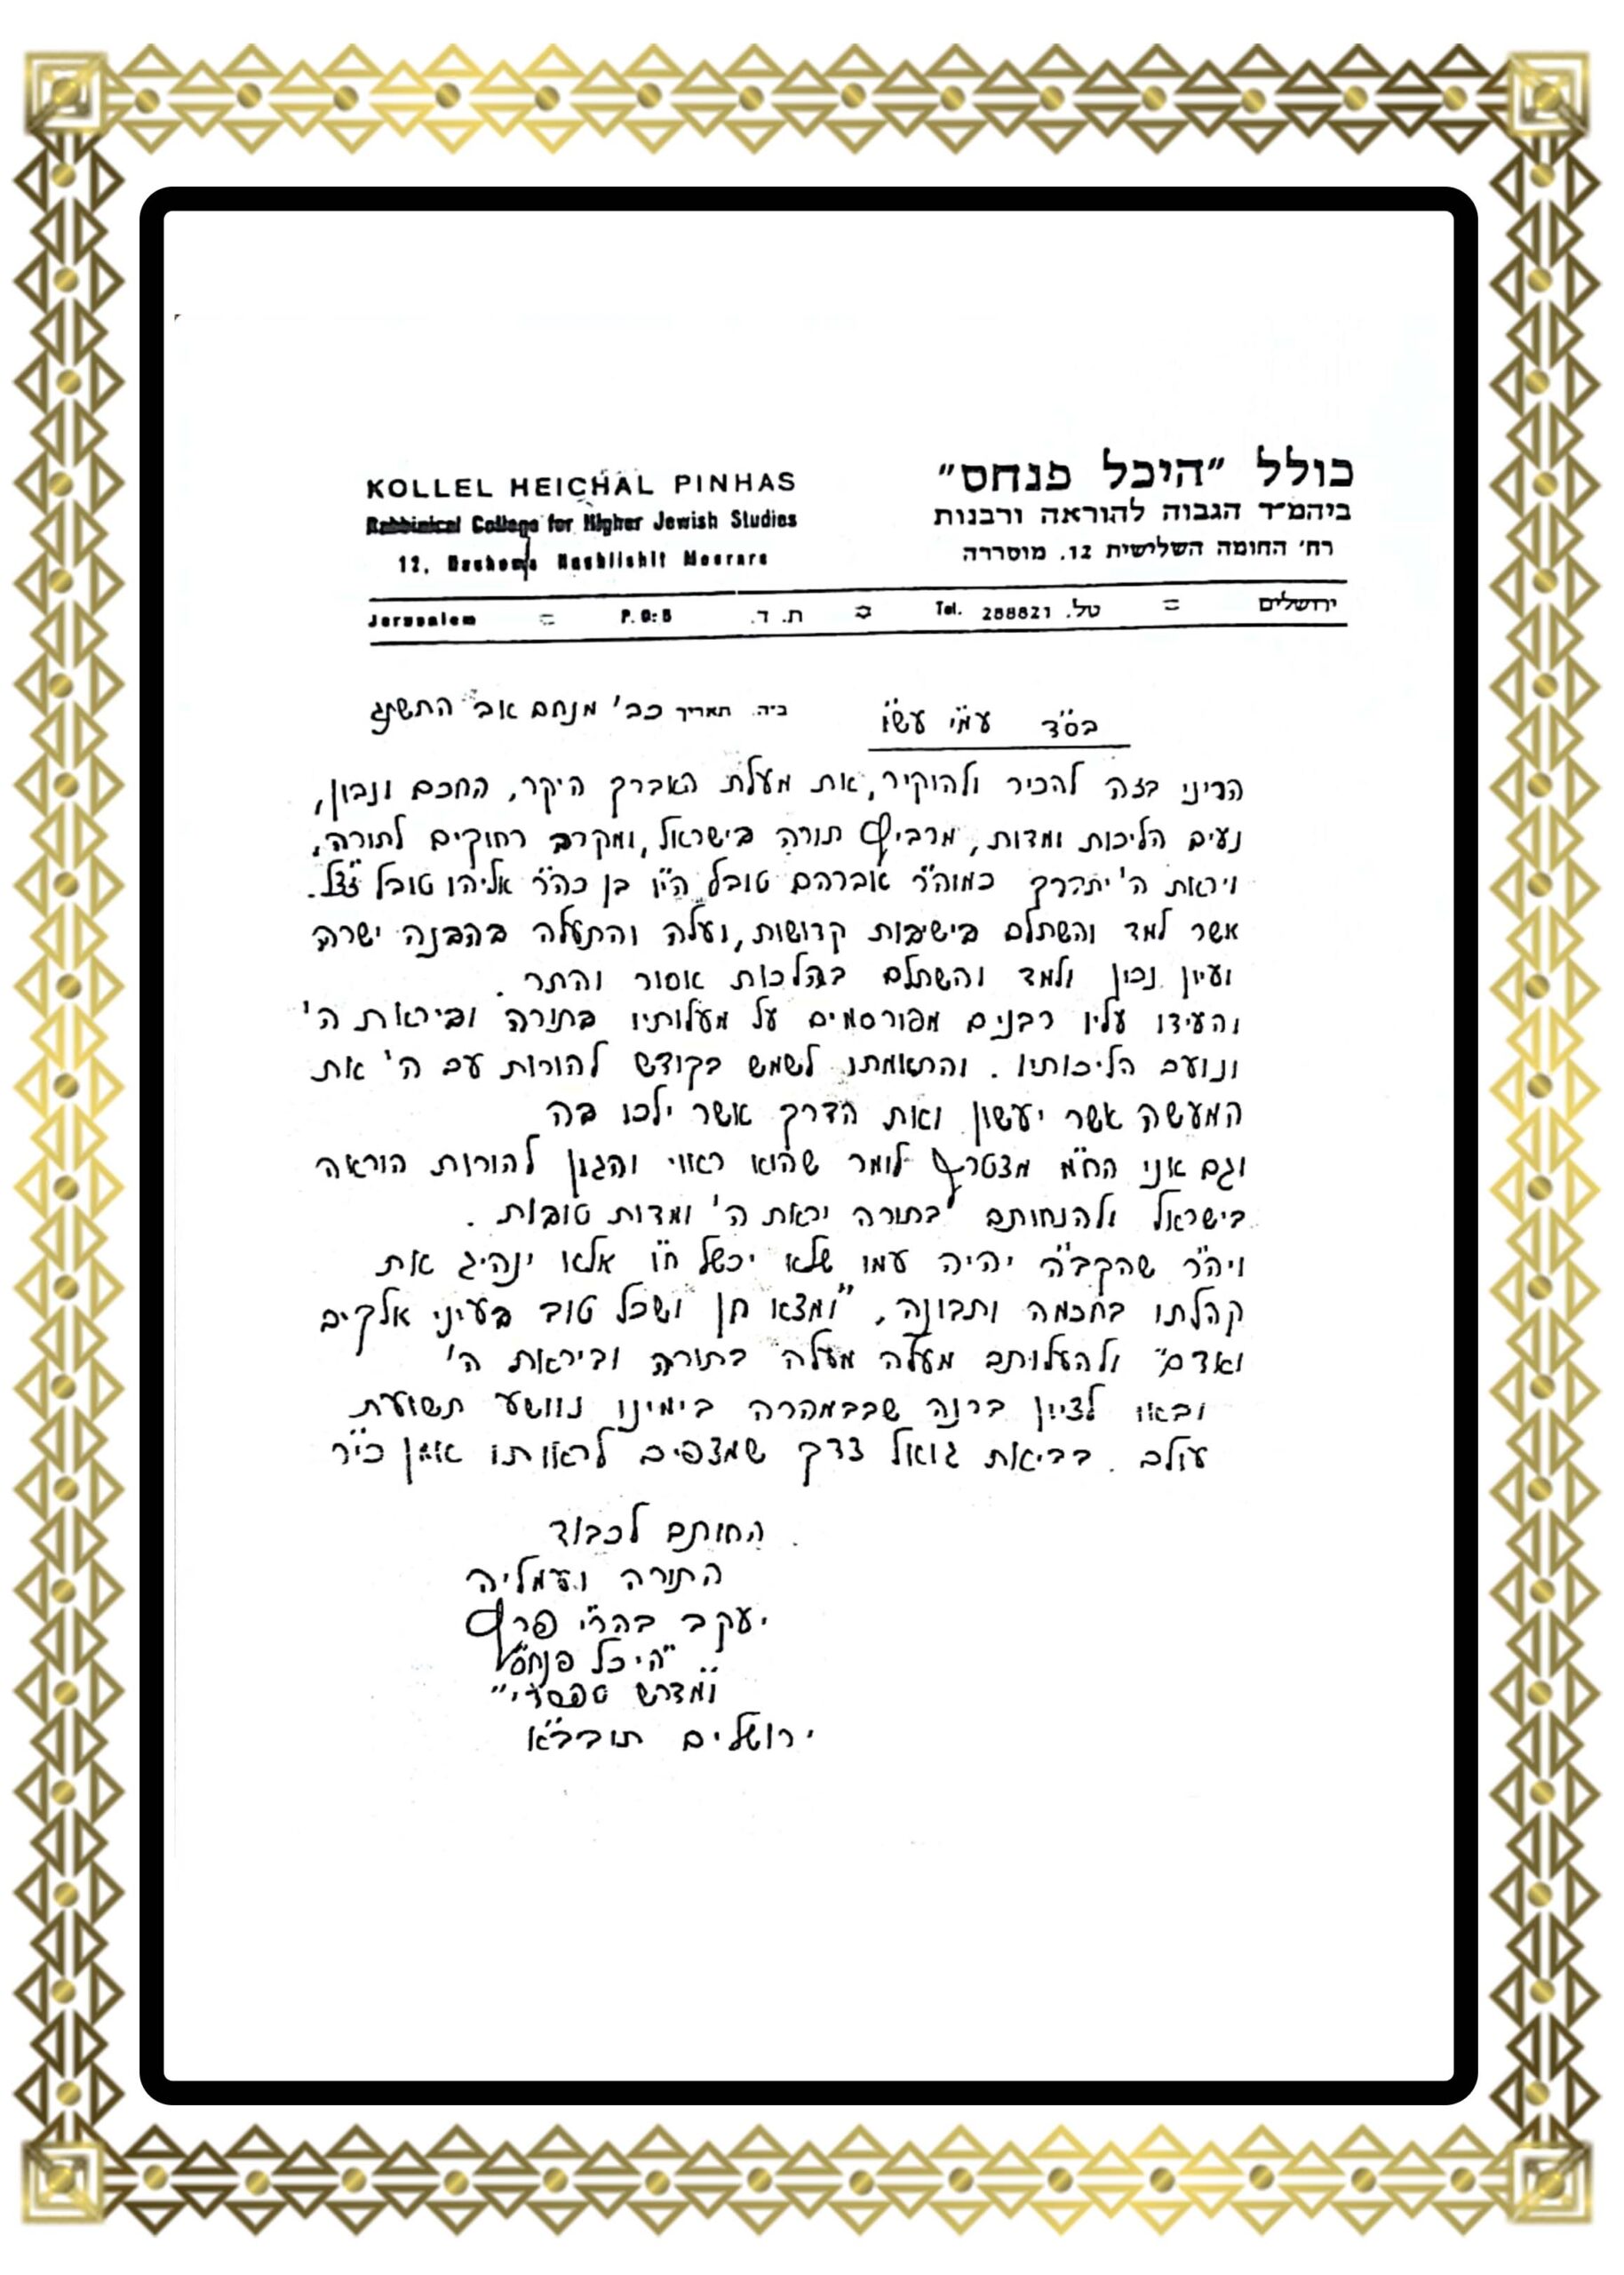 כולל "היכל פנחס"
ביהמ"ד הגבוה להוראה ורבנות
רח' החומה השלישית 12. מוסררה
KOLLEL HEICHAL PINHAS
Rabbinical College for Higher Jewish Studies
12,
ירושלים = טל. 288821 Tel. ת. ד. P.O.B = Jerusalem
ב"ה. תאריך כב' מנחם אב התשנג
בס"ד עמ"י עש"ו
הריני בזה להכיר ולהוקיר, את מעלת האברך היקר, החכם ונבון,
נעים הליכות ומדות, מרביץ תורה בישראל, ומקרב רחוקים לתורה,
ויראת ה' יתברך כמוה"ר אברהם טובול הי"ו בן כה"ר אליהו טובל זצ"ל.
אשר למד והשתלם בישיבות קדושות, ועלה והתעלה בהבנה ישרה
ועיון נכון ולמד והשתלם בהלכות אסור והתר.
והעידו עליו רבנים מפורסמים על מעלותיו בתורה וביראת ה'
ונועם הליכותיו. והתאמתו לשמש בקודש להורות עם ה' את
המעשה אשר יעשון ואת הדרך אשר ילכו בה
וגם אני הח"מ מצטרף לומר שהוא ראוי והגון להורות הוראה
בישראל ולהנחותם בתורה יראת ה' ומדות טובות.
ויה"ר שהקב"ה יהיה עמו שלא יכשל ח"ו אלא ינהיג את
קהלתו בחכמה ותבונה, "ומצא חן ושכל טוב בעיני אלקים
ואדם" ולהעלותם מעלה מעלה בתורה וביראת ה'
ובאו לציון ברנה שבבמהרה בימינו נוושע תשועת
עולם בביאת גואל צדק שמצפים לראותו אמן כי"ר
החותם לכבוד
התורה ועמליה
יעקב בהר"י פרץ
"היכל פנחס"
ומדרש ספסרי"
ירושלים תובב"א